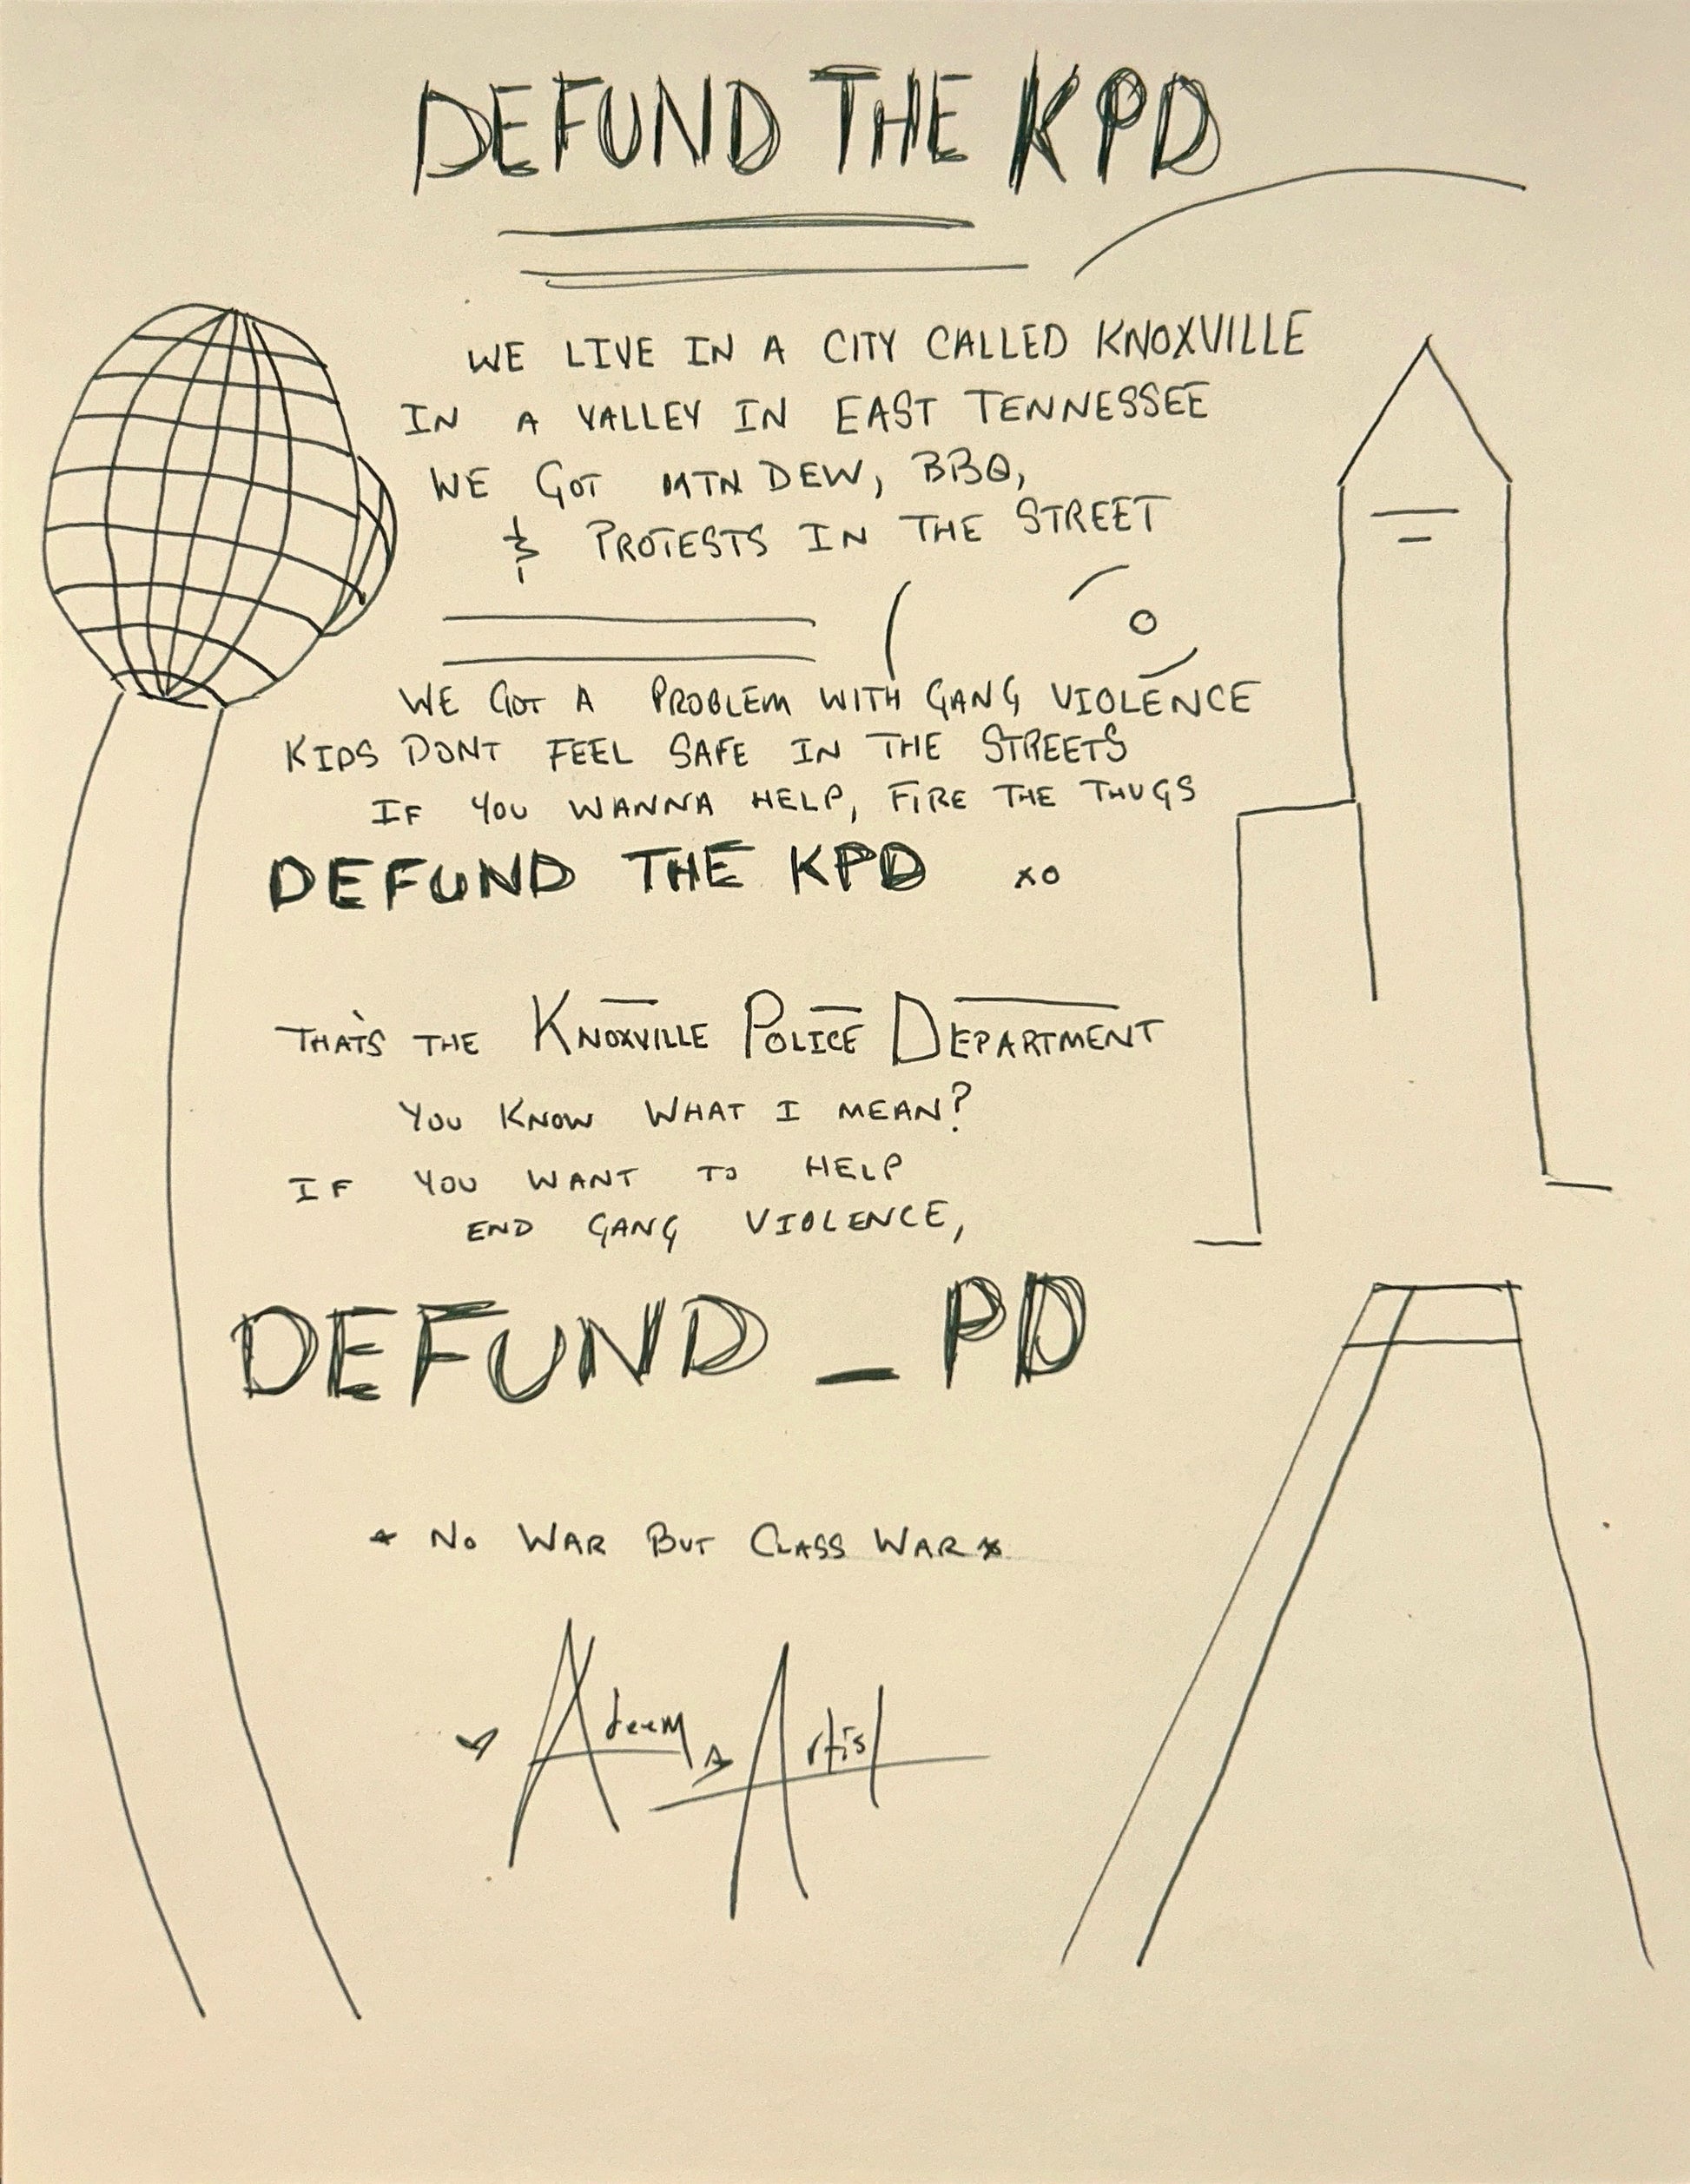 DEFUND THE KPD
WE LIVE IN A CITY CALLED KNOXVILLE
IN A VALLEY IN EAST TENNESSEE
WE GOT MTN DEW, BBQ,
& PROTESTS IN THE STREET
WE GOT A PROBLEM WITH GANG VIOLENCE
KIDS DONT FEEL SAFE IN THE STREETS
IF YOU WANNA HELP, FIRE THE THUGS
DEFUND THE KPD xo
THAT'S THE KNOXVILLE POLICE DEPARTMENT
YOU KNOW WHAT I MEAN?
IF YOU WANT TO HELP
END GANG VIOLENCE,
DEFUND _ PD
* NO WAR BUT CLASS WAR *
Adeem Artist